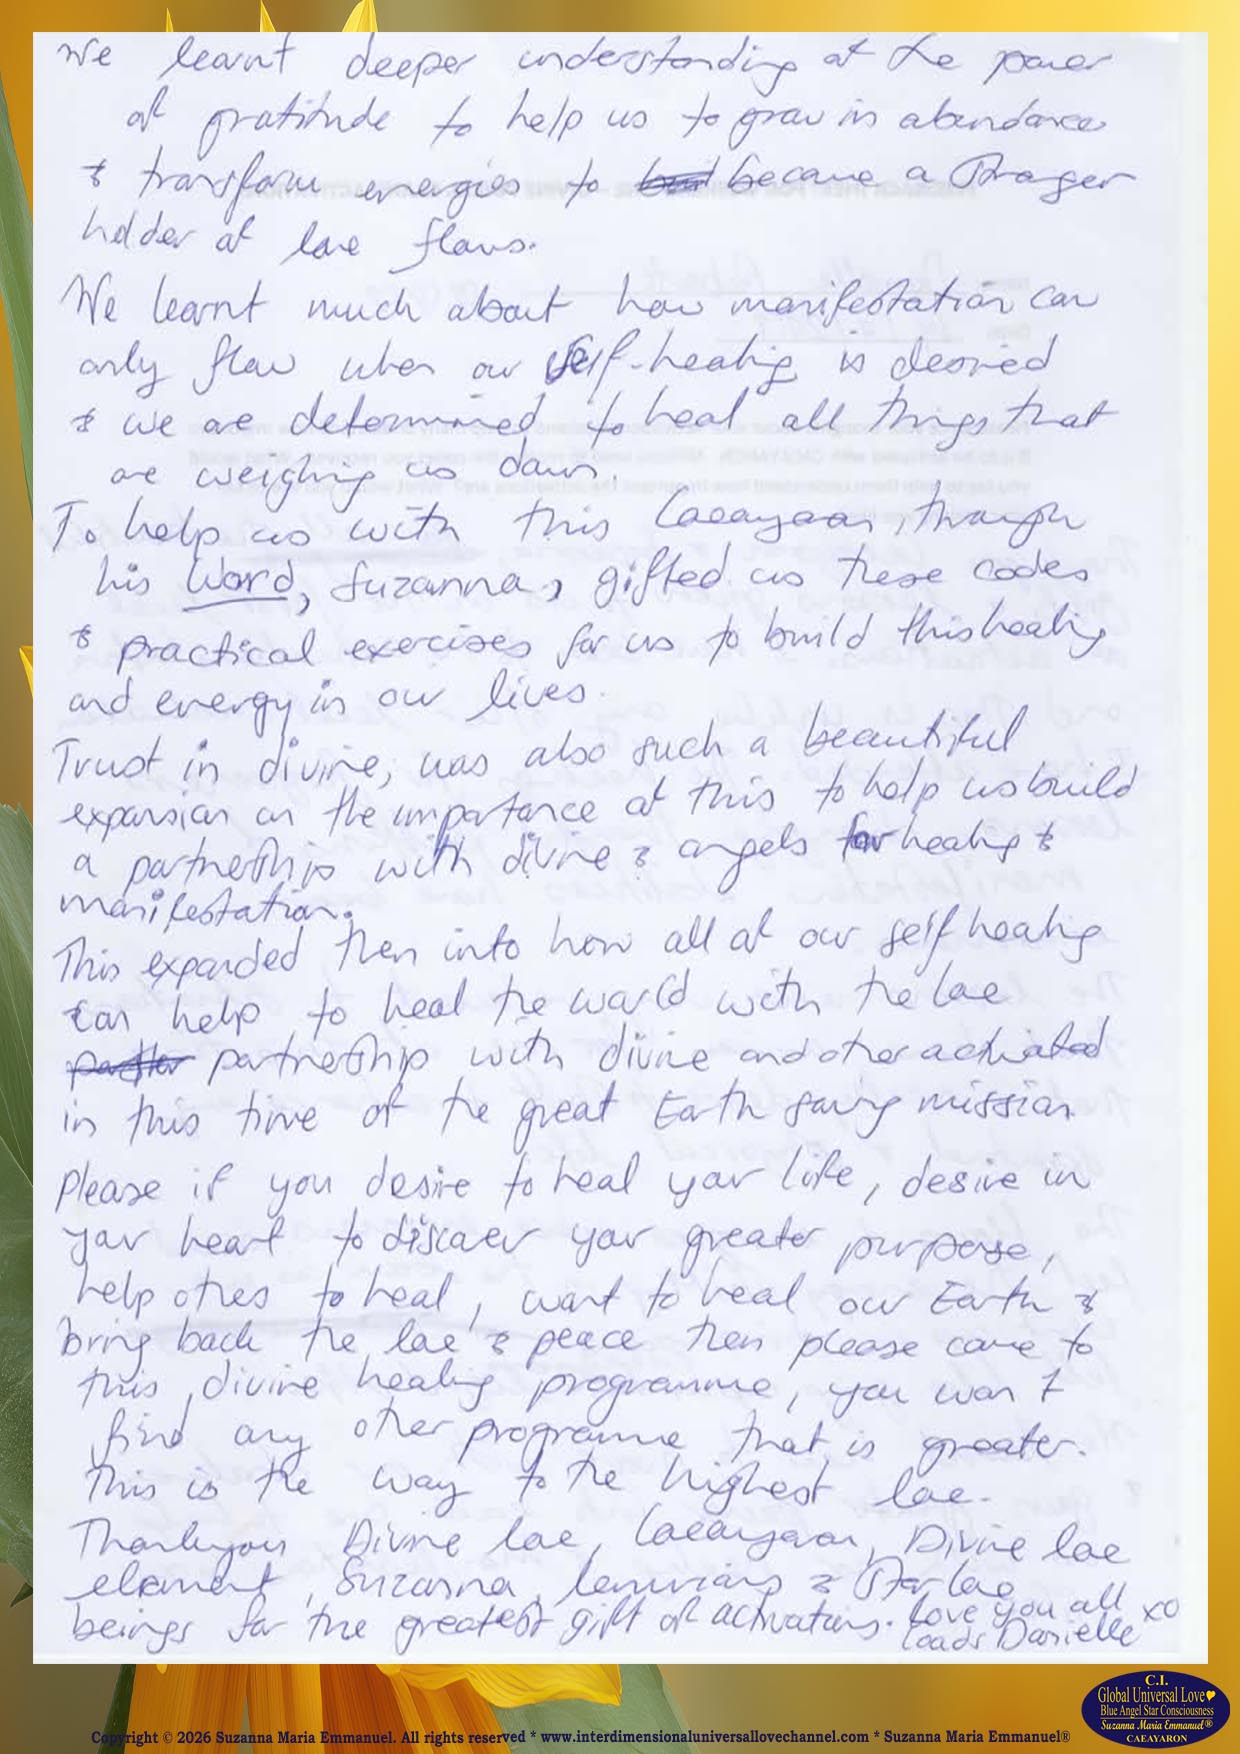 We learnt deeper understanding of the power
of gratitude to help us to grow in abundance
& transform energies to become a stronger
holder of love flows.
We learnt much about how manifestation can
only flow when our self-healing is desired
& we are determined to heal all things that
are weighing us down.
To help us with this Caeayaron, through
his Word, Suzanna, gifted us these codes
& practical exercises for us to build this healing
and energy in our lives.
Trust in divine, was also such a beautiful
expansion on the importance of this to help us build
a partnership with divine & angels for healing &
manifestation.
This expanded then into how all of our self healing
can help to heal the world with the love
partnership with divine and other activated
in this time of the great Earth saving mission
Please if you desire to heal your life, desire in
your heart to discover your greater purpose,
help others to heal, want to heal our Earth &
bring back the love & peace then please come to
this, divine healing programme, you won't
find any other programme that is greater.
This is the way to the highest love.
Thankyou Divine love, Caeayaron, Divine love
element, Suzanna, Lemurians & Star love
beings for the greatest gift of activations. Love you all xo
Loads Danielle
C.I.
Global Universal Love
Blue Angel Star Consciousness
Suzanna Maria Emmanuel®
CAEAYARON
Copyright © 2026 Suzanna Maria Emmanuel. All rights reserved * www.interdimensionaluniversallovechannel.com * Suzanna Maria Emmanuel®